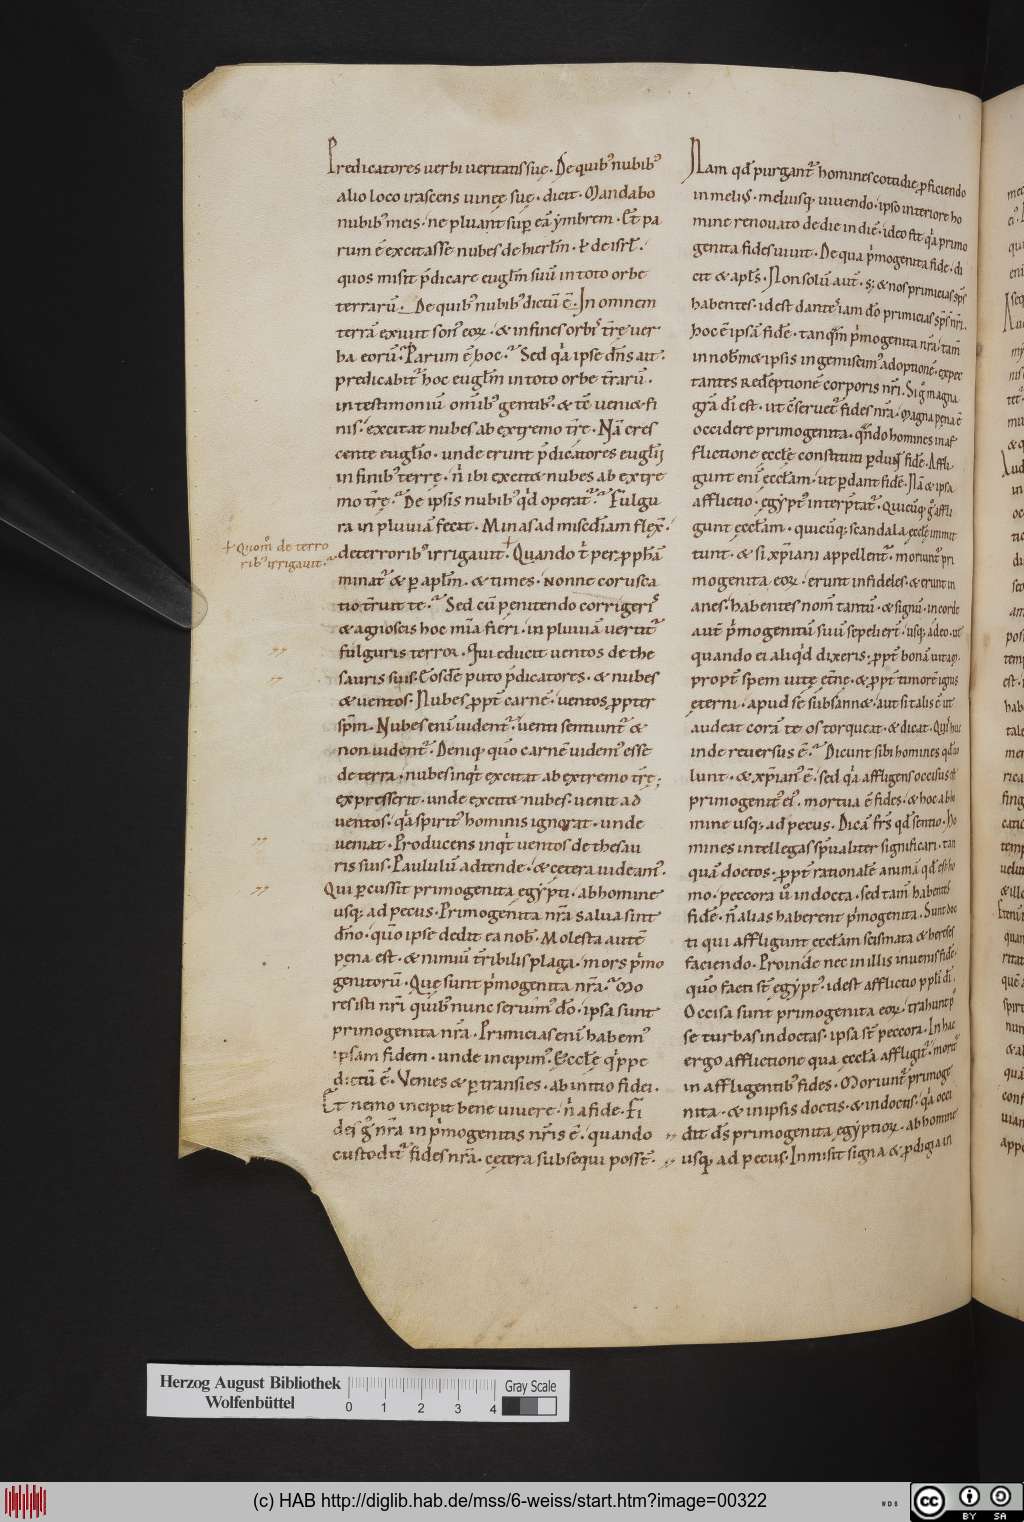 Predicatores uerbi ueritatis suę. De quib; nubib;
alio loco irascens uineę suę. dicit. Mandabo
nubib; meis. ne pluant sup eā ẏmbrem. Et pa
rum ē excitasse nubes de hierłm. ł de isrł.
quos misit p̄dicare euglm̄ suū in toto orbe
terrarū. De quib; nubib; dictū ē. In omnem
terrā exiuit son; eoꝝ. & in fines orbis tr̄ę uer
ba eorū. Parum ē hoc. Sed q̇a ipse dn̄s ait.
predicabit̄ hoc euglm̄ in toto orbe tr̄arū.
in testimoniū omīb; gentib;. & tē ueni& fi
nis. excitat nubes ab extremo tr̄ę. Nā cres
cente euglīo. unde erunt p̄dicatores euglīi
in finib; terrę. n̄ ibi excit& nubes ab extre
mo tr̄ę. De ipsis nubib; qd̄ operat̄. Fulgu
ra in pluuiā fecit. Minas ad mīsediam flex̄.
de terrorib; irrigauit. Quando t̄ per pph̄ā
minat̄ & p aplm̄. & times. nonne corusca
tio tr̄ruit te. Sed cū penitendo corrigeris
& agnoscis hoc mīa fieri. in pluuiā uertit̄
fulguris terror. Qui educit uentos de the
sauris suis. Eosdē puto p̄dicatores. & nubes
& uentos. Nubes ppt̄ carnē. uentos ppter
spm̄. Nubes enī uident̄. uenti sentiunt̄ &
non uident̄. Deniq; quō carnē uidem; esse
de terra. nubes inq̇t excitat ab extremo tr̄ę;
expresserit. unde excit& nubes. uenit ad
uentos. q̇a spirit; hominis ignorat. unde
ueniat. Producens inq̇t uentos de thesau
ris suis. Paululū adtende. & cetera uideam;.
Qui percussit primogenita egẏpti. ab homine
usq; ad pecus. Primogenita nr̄a salua sint
dn̄o. quō ipse dedit ea nob. Molesta autē
pena est. & nimiū tr̄ribilis plaga. mors p̄mo
genitorū. Quę sunt p̄mogenita nr̄a. Mo
res isti nr̄i quib; nunc seruim; dō. ipsa sunt
primogenita nr̄a. Primicias enī habem;
ipsam fidem. unde incipim;. Ęcclę q̇ppe
dictū ē. Venies & ptransies. ab initio fidei.
Et nemo incipit bene uiuere. n̄ a fide. Fi
des g nr̄a in p̄mogenitis nr̄is ē. quando
custodit̄ fides nr̄a. cętera subsequi posst̄.
+ Quom̊ de terro
rib; irrigauit.
Nam qd̄ purgant̄ homines cottidie pficiendo
in meli;. meliusq; uiuendo. ipso interiore ho
mine renouato de die in diē. ideo fit q̇a primo
genita fides uiuit. De qua p̄mogenita fide. di
cit & apls̄. Non solū aut̄. s; & nos primicias sps̄
habentes. id est dantes iam dō primicias sps̄ nr̄i.
hoc ē ipsā fidē. tanqm̄ p̄mogenita nr̄a. tam̄
in nob;m& ipsis ingemiscim; adoptionē. expec
tantes redēptionē corporis nr̄i. Sig magna
gr̄a dī est. ut c̄seruet̄ fides nr̄a. Magna pena ē
occidere primogenita. qn̄do homines in af
flictione ecclę constituti pdunt fidē. Affli
gunt eni; ecclam. ut pdant fidē. Nā & ipsa
afflictio. egẏpt; interp̄tat̄. Quicūq; g affli
gunt ecclam. quicūq; scandala ecclę inmit
tunt. & si xp̄iani appellent̄. moriunt̄ pri
mogenita eoꝝ. erunt infideles. & erunt in
anes. habentes nom̄ tantū. & signū. in corde
aut̄ p̄mogenitū suū sepelierī. usq; adeo. ut
quando ei aliq̇d dixeris; ppt̄ bonā uitā.
propt̄ spem uitę ęt̄nę. & ppt̄ timorē ignis
ęterni. apud sē subsann&. aut si talis ē ut
audeat corā te os torqueat. & dicat. Quis huc
inde reuersus ē. Dicunt sibi homines qd̄ uo
lunt. & xp̄ian; ē. sed q̇a affligens occisus est
primogenit; ei;. mortua ē fides. & hoc ab ho
mine usq; ad pecus. Dicā fr̄s qd̄ sentio. Ho
mines intellegas sp̄ualiter significari. tan
quā doctos. ppt̄ rationalē animā qd̄ est ho
mo. peccora ů indocta. sed tam̄ habentes
fidē. n̄ alias haberent p̄mogenita. Sunt doc
ti qui affligunt ecclam scismata & hereses
faciendo. Proinde nec in illis inuenis fidē.
quō facti st̄ egẏpt;. id est afflictio ppli dī.
Occisa sunt primogenita eoꝝ. trahunt p;
se turbas indoctas. ipsa st̄ peccora. In hac
ergo afflictione qua ecclā affligit̄. moriunt̄
in affligentib; fides. Moriunt̄ primoge
nita. & in ipsis doctis. & indoctis. q̇a occi
dit ds̄ primogenita egẏptioꝝ. ab homine
usq; ad pecus. Inmisit signa & pdigia in
Herzog August Bibliothek
Wolfenbüttel
0 1 2 3 4
Gray Scale
(c) HAB http://diglib.hab.de/mss/6-weiss/start.htm?image=00322
cc BY SA